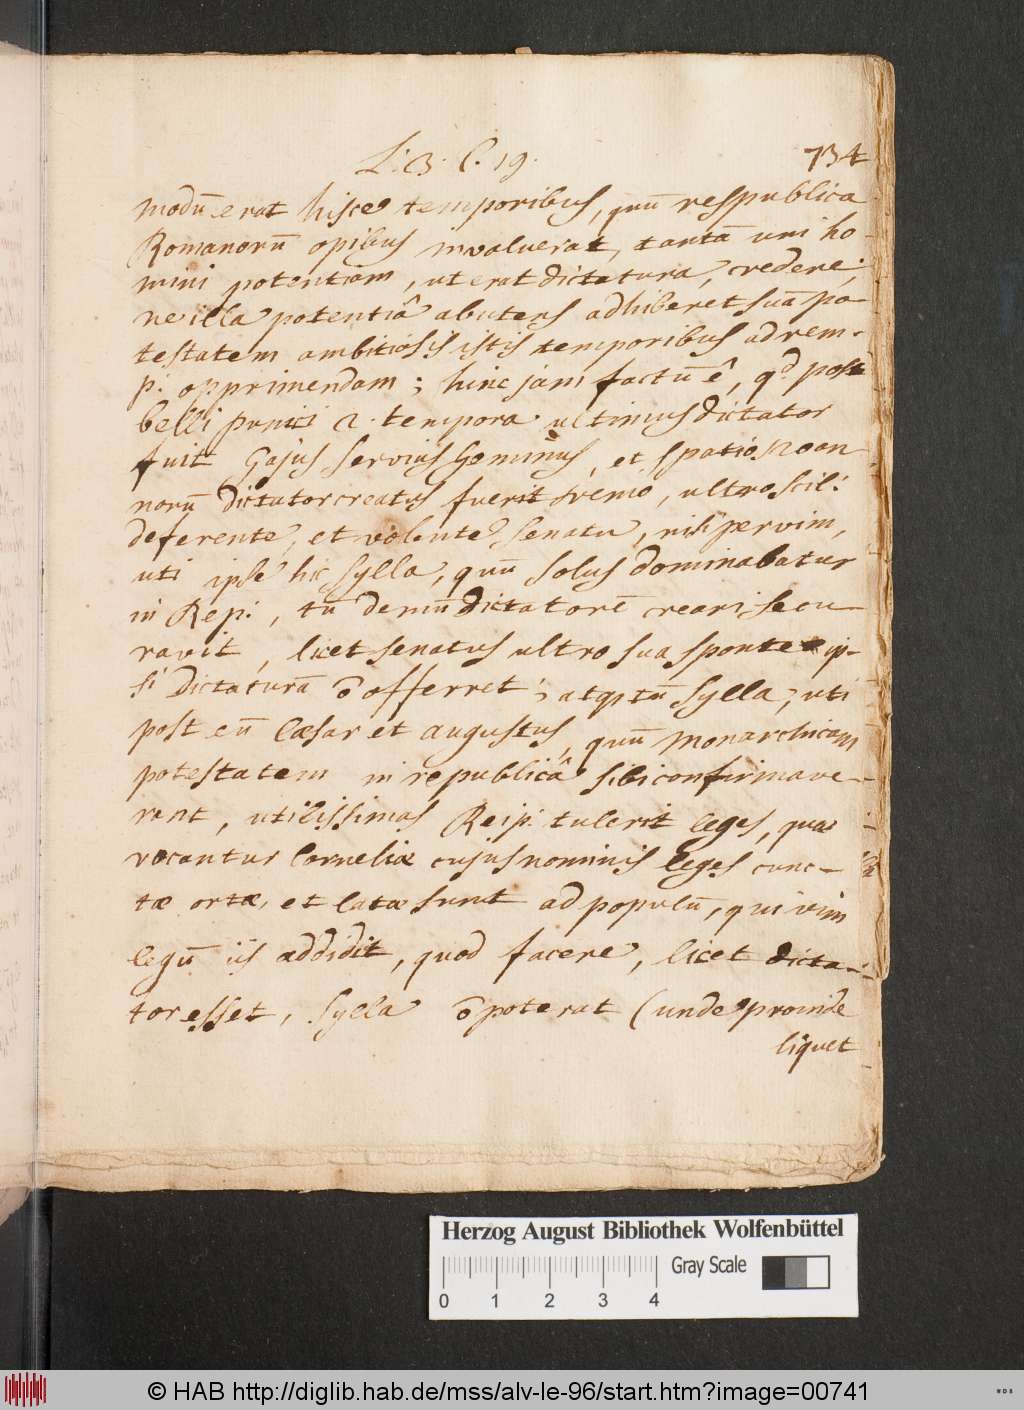 L: 3. C. 19.
734
modū erat hisce temporibus, quū respublica
Romanorū opibus invaluerat, tantā uni ho-
mini potentiam, ut erat dictatura, credere;
ne illa potentiâ abutens adhiberet suā po-
testatem ambitiosis istis temporibus ad rem-
p. opprimendam; hinc jam factū ē, qd post
belli punici 2. tempora ultimus dictator
fuit Gajus Servius Geminus, et spatio 120 an
norū dictator creatus fuerit nemo, ultro scil:
deferente, et volente senatu, nisi per vim,
uti ipse hic Sylla, quū solus dominabatur
in Rep:, tū demū dictatorē creari se cu-
ravit, licet senatus ultro sua sponte ip-
si Dictaturā ō offerret; atq; tū Sylla, uti
post eū Cæsar et Augustus, quū Monarchicam
potestatem in republicâ sibi confirmave-
rant, utilissimas Reip: tulerit leges, quæ
vocantur Corneliæ cujus nominis leges cunc-
tæ ortæ, et latæ sunt ad populū, qui vim
legū iis addidit, quod facere, licet dicta-
tor esset, Sylla ō poterat (unde proinde
liquet
Herzog August Bibliothek Wolfenbüttel
Gray Scale
0 1 2 3 4
© HAB http://diglib.hab.de/mss/alv-le-96/start.htm?image=00741